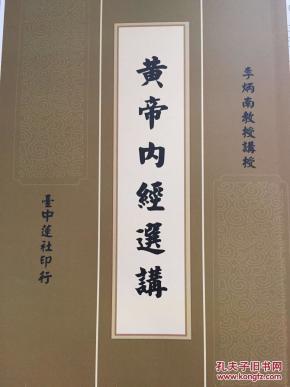 李炳南教授講授
黃帝內經選講
臺中蓮社印行
孔夫子旧书网